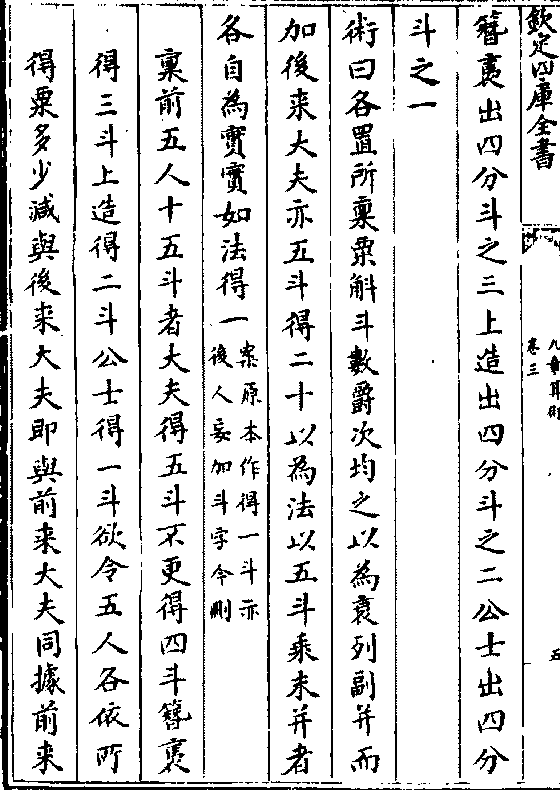 欽定四庫全書
九章算術
卷三
五
簪裊出四分斗之三上造出四分斗之二公士出四分
斗之一
術曰各置所稟粟斛斗數爵次均之以為衰列副并而
加後来大夫亦五斗得二十以為法以五斗乘未并者
各自為實實如法得一案原本作得一斗亦
後人妄加斗字今刪
稟前五人十五斗者大夫得五斗不更得四斗簪裊
得三斗上造得二斗公士得一斗欲令五人各依所
得粟多少減與後来大夫即與前来大夫同據前来